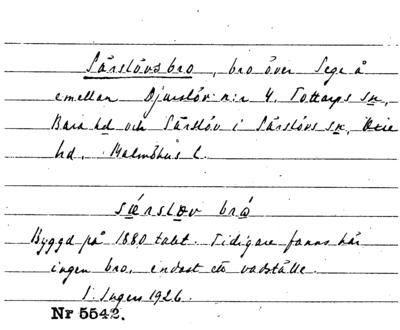 Särslövsbro, bro över Sege å
emellan Djurslöv n:r 4, Tottarps sn,
Bara hd och Särslöv i Särslövs sn, Oxie
hd, Malmöhus l.
særsløv brǫ
Byggd på 1880 talet. Tidigare fanns här
ingen bro, endast ett vadställe.
I. Ingers 1926.
Nr 5542.